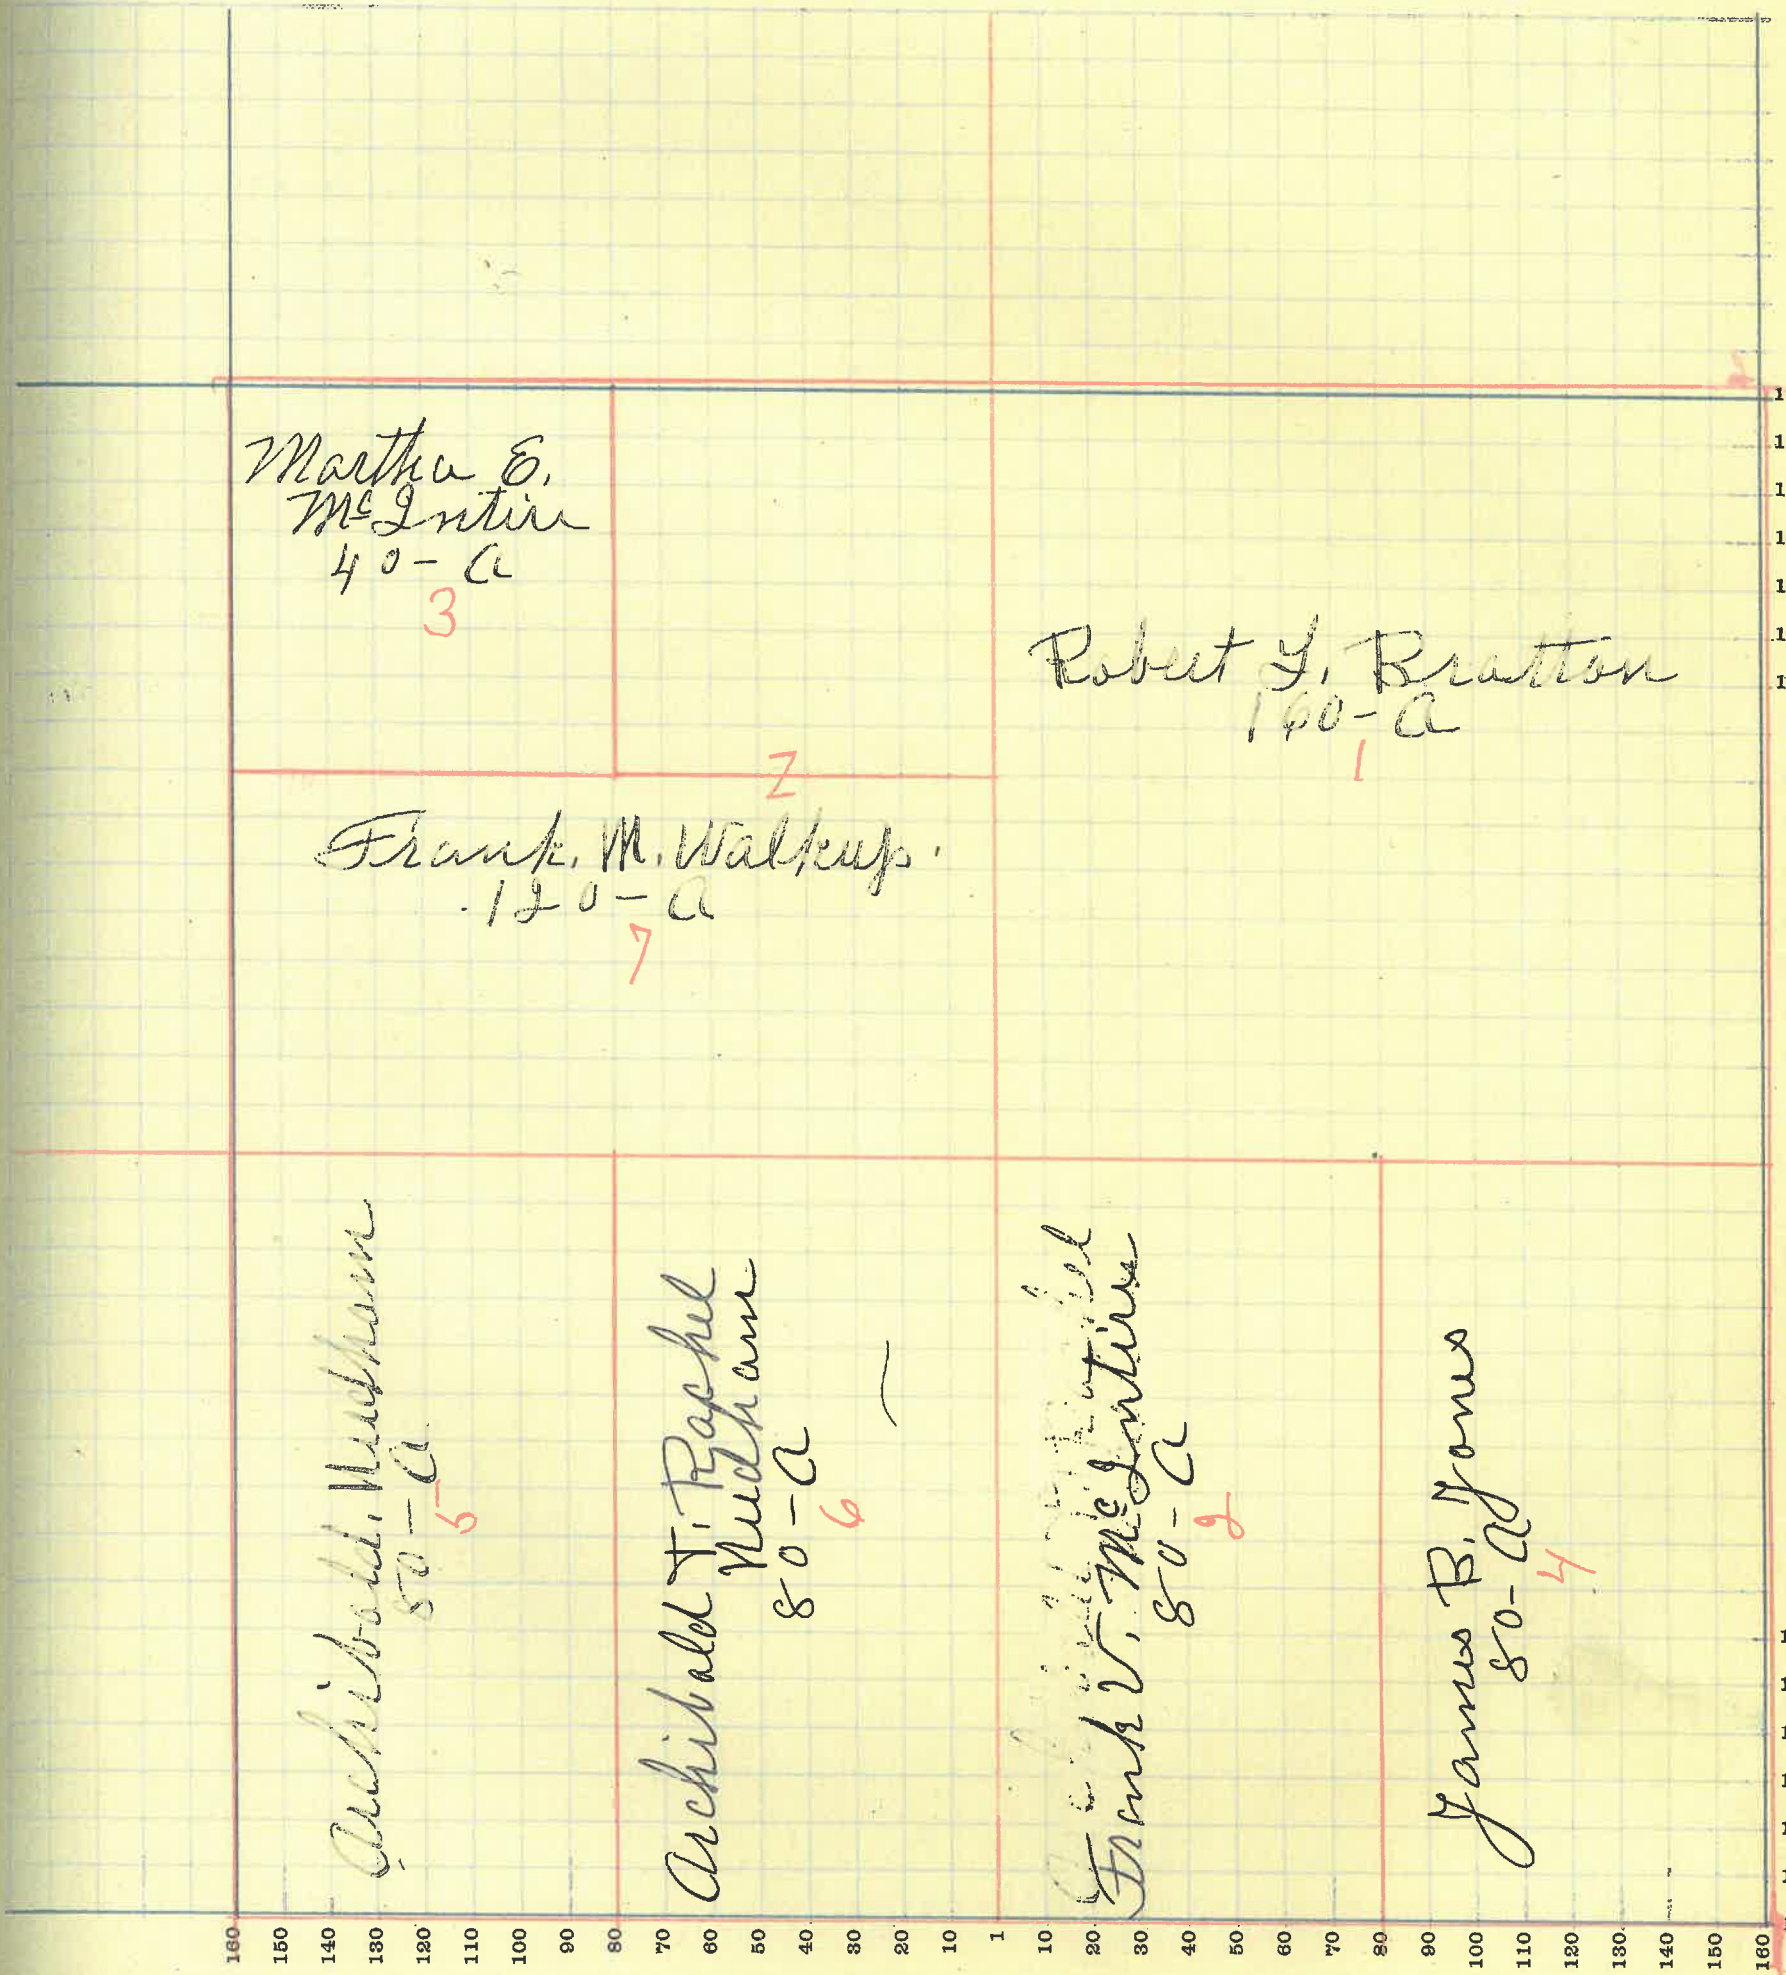 Martha E.
McIntire
40-A
3
Robert Y. Bratton
160-A
1
Z
Frank. M. Walkup.
120-A
7
Archibald. Needham
80-A
5
Archibald T. Raphel
Needham
80-A
6
Frank V. McIntire
80-A
2
James B. Jones
80-A
4
160 150 140 130 120 110 100 90 80 70 60 50 40 30 20 10 1 10 20 30 40 50 60 70 80 90 100 110 120 130 140 150 160